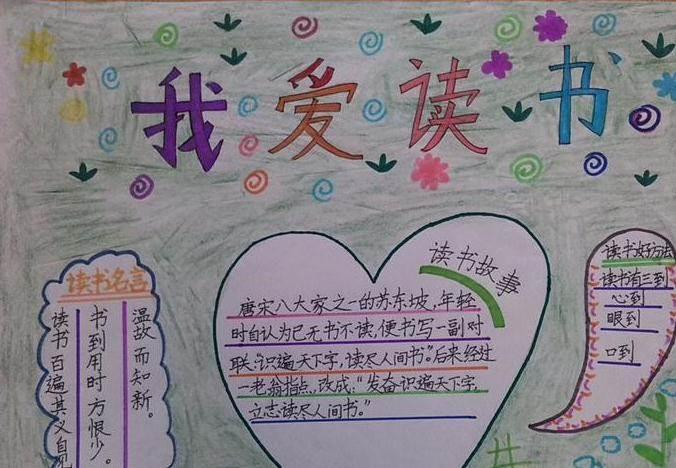 我爱读书
读书名言
温故而知新。
书到用时方恨少。
读书百遍其义自见
读书故事
唐宋八大家之一的苏东坡,年轻
时自认为已无书不读,便书写一副对
联:“识遍天下字,读尽人间书。”后来经过
一老翁指点,改成:“发奋识遍天下字,
立志读尽人间书。”
读书好方法
读书有三到
心到
眼到
口到